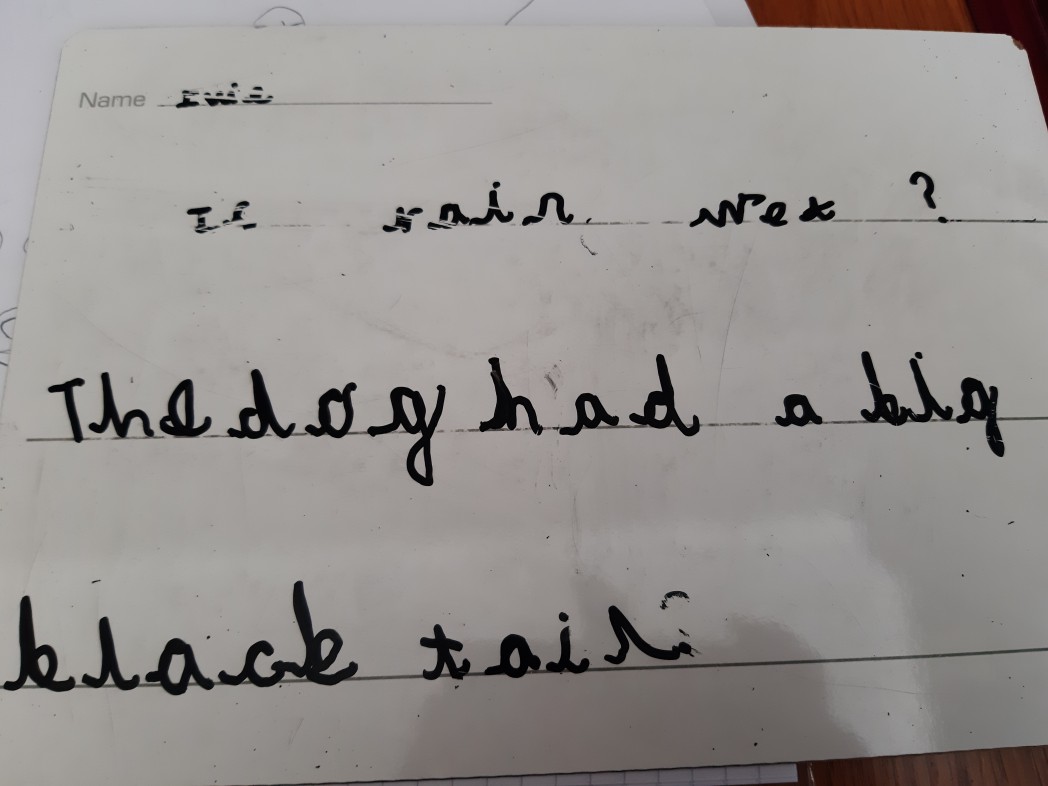 Name
Is rain wet ?
The dog had a big
black tail.